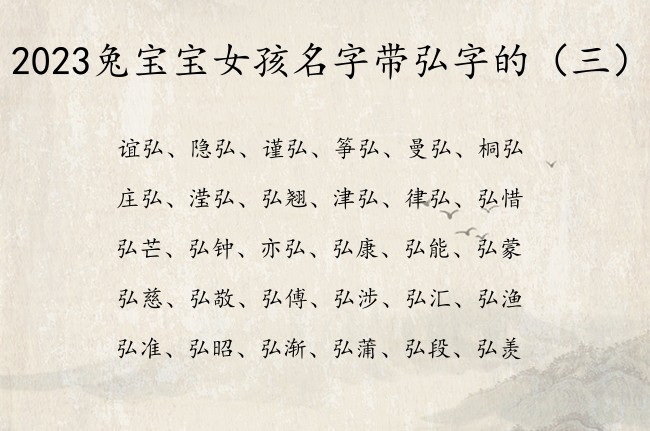 2023兔宝宝女孩名字带弘字的（三）
谊弘、隐弘、谨弘、筝弘、曼弘、桐弘
庄弘、滢弘、弘翘、津弘、律弘、弘惜
弘芒、弘钟、亦弘、弘康、弘能、弘蒙
弘慈、弘敬、弘傅、弘涉、弘汇、弘渔
弘准、弘昭、弘渐、弘蒲、弘段、弘羡